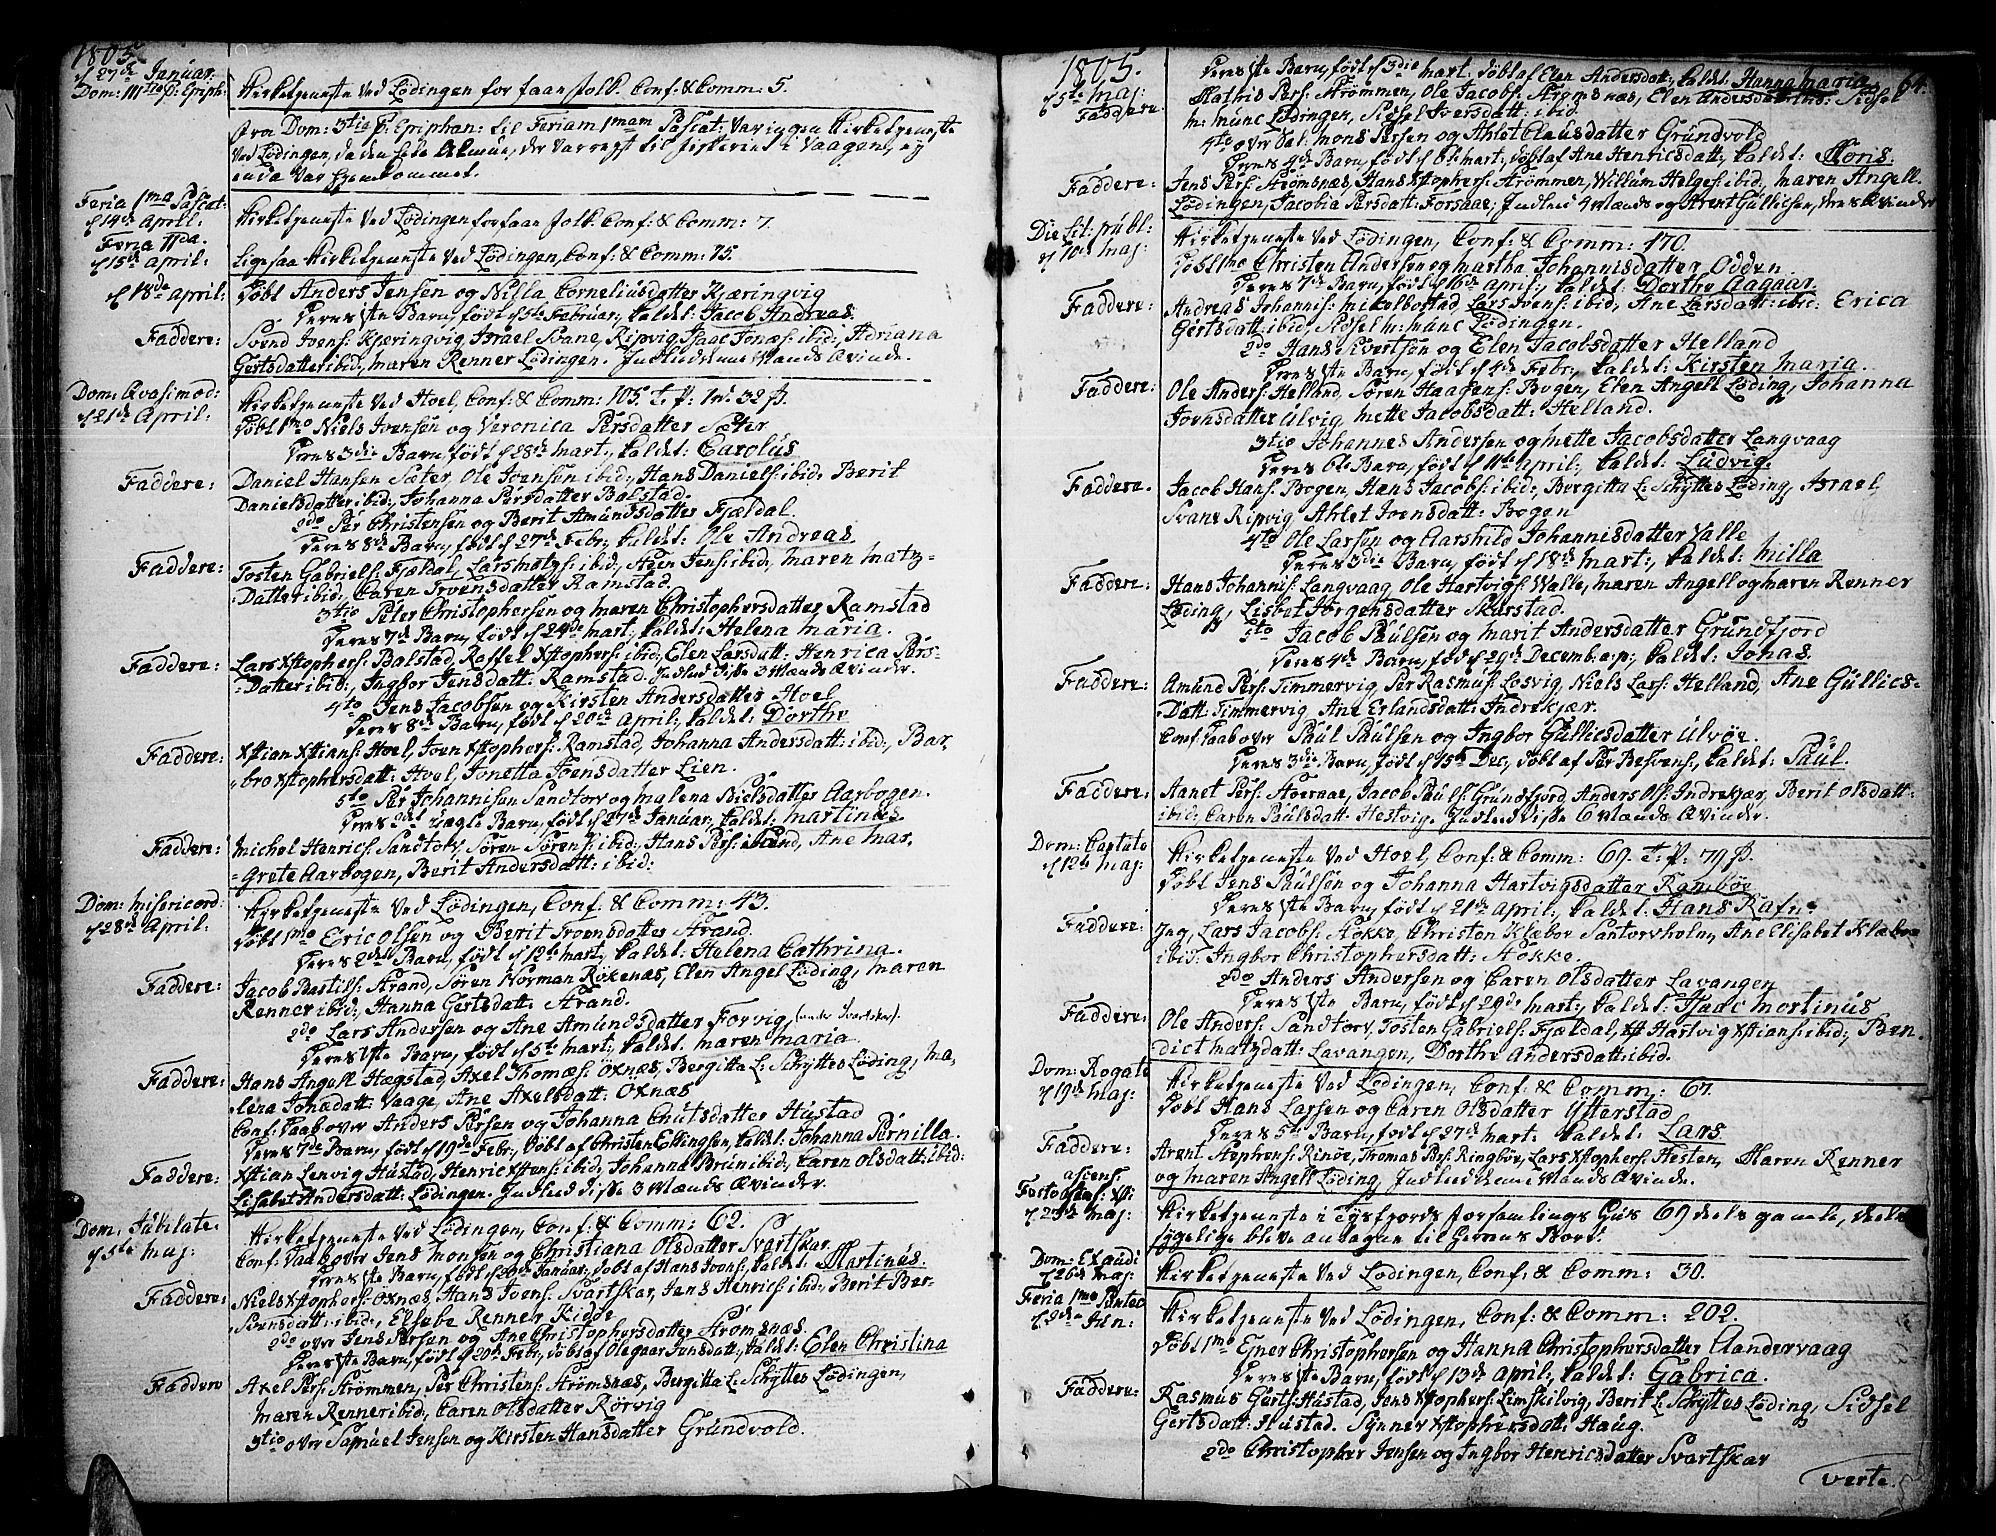 1805.
d 27de Januar:
Dom: IIItia p: Epiph:
Kirketjeneste ved Lödingen for faae Folk. Conf: & Comm: 5.
fra Dom: 3tia p: Epiphan: til Feriam 1mam Pascat: var ingen Kirketjeneste
ved Lödingen, da den hele Almue, der var rejst til fiskeriet i Vaagen, ej
enda var hjemkommet.
Feria 1ma Pascat:
d 14de April:
Kirketjeneste ved Lödingen for faae Folk. Conf: & Comm: 7.
Feria IIda.
d 15de April:
Ligesaa Kirketjeneste ved Lödingen, Conf: & Comm: 75.
d 18de April:
Döbt Anders Jensen og Nilla Corneliusdatter Kjæringvig
Deres 1ste Barn, födt d 5te Februar:, kaldet: Jacob Andreas.
Faddere:
Svend Ivens: Kjæringvig, Israel Svane, Ripvig Isaac Jonæs: ibid:, Adriana
Gertsdatter ibid:, Maren Renner Lödingen. Indleed: denne Mands Qvinde.
Dom: Qvasimod:
d 21de April:
Kirketjeneste ved Hoel, Conf: & Comm: 105. T. p: 1 rd: 32 ß
Döbt 1mo Niels Ivensen og Veronica Persdatter Sæter
Deres 3die Barn, födt d 28de Mart:, kaldet: Carolus
Faddere:
Daniel Hansen Sæter, Ole Ivensen ibid:, Hans Daniels: ibid:, Berit
Danielsdatter ibid:, Johanna Persdatter Balstad.
2do Per Christensen og Berit Amundsdatter Fjældal.
Deres 8de Barn, födt d 27de Febr:, kaldet: Ole Andreas
Faddere:
Tosten Gabriels: Fjældal, Lars Matys: ibid:, Steen Jens: ibid:, Maren Matz-
Datter ibid:, Caren Troensdatter Ramstad.
3tio Peter Christophersen og Maren Christophersdatter Ramstad
Deres 7de Barn, födt d 24de Mart:, kaldet: Helena Maria.
Faddere:
Lars Xstophers: Balstad, Raffel Xstophers: ibid:, Elen Larsdatt: Henrica Pers-
Datter ibid:, Ingbor Jensdatt: Ramstad. Indleed: disse 3 Mænds Qvinder.
4to Jens Jacobsen og Kirsten Andersdatter Hoel
Deres 8de Barn, födt d 20de April:, kaldet: Dorthe
Faddere:
Xstian Xstians: Hoel, Joen Xstophers: Ramstad, Johanna Andersdatt: ibid:, Bar,
bro Xstophersdatt: Hoel, Jonetta Joensdatter Lien.
5to Per Johannisen Sandtorv og Malena Nielsdatter Aarbogen.
Deres 2det uægte Barn, födt d 27de Januar, kaldet: Martinus
Faddere:
Michel Henrics: Sandtorv, Sören Sörens: ibid:, Hans Pers: ibid, Ane Mar,
Grete Aarbogen, Berit Andersdatt: ibid:
Dom: Misericord.
d 28de April:
Kirketjeneste ved Lödingen, Conf: & Comm: 43.
Döbt 1mo Eric Olsen og Berit Troensdatter Strand.
Deres 2det Barn, födt d 12te Mart:, kaldet: Helena Cathrina.
Faddere:
Jacob Bastils: Strand, Sören Norman Röxenæs, Elen Angel Löding, Maren
Renner ibid:, Hanna Gertsdatt: Strand.
2do Lars Andersen og Ane Amundsdatter Forvig (under Svartskar).
Deres 1ste Barn, födt d 5te Mart:, kaldet: Maren Maria
Faddere:
Hans Angell Hægstad, Axel Thomæs: Oxnæs, Bergitta L: Schyttes Löding, Ma,
lena Jonædatt: Vaage, Ane Axelsdatt: Oxnæs
Conf: Daab over Anders Persen og Johanna Cnutsdatter Hustad
Deres 7de Barn, födt d 19de Febr:, Döbt af Christen Ellingsen, kaldet: Johanna Pernilla.
Faddere:
Xstian Lenvig Hustad, Henric Xstens: ibid:, Johanna Brun ibid:, Caren Olsdatt: ibid:
Lisabet Andersdatt: Lödingen. Indleed: disse 3 Mænds Qvinder.
Dom: Jubilate.
d 5te Maj:
Kirketjeneste ved Lödingen, Conf: & Comm: 62.
Conf: Daab over Jens Monsen og Christiana Olsdatter Svartskar.
Deres 1ste Barn, födt d 20de Januar, Döbt af Hans Ivens:, kaldet: Martinus.
Faddere:
Niels Xstophers: Oxnæs, Hans Ivens: Svartskar, Jens Henrics: ibid:, Berit Ber-
Svensdatt: ibid:, Elsebe Renner Kidde
2do over Jens Persen og Ane Christophersdatter Strömsnæs.
Deres 1ste Barn, födt d 20de Febr:, döbt af Olegaar Jensdatt:, kaldet: Elen Christina
Faddere
Axel Pers: Strömmen, Per Christens: Strömsnæs, Bergitta L: Schyttes Lödingen,
Maren Renner ibid:, Caren Olsdatter Rörvig
3tio over Samuel Jensen og Kirsten Hansdatter Grundvold.
1805.
64.
d 5te Maj:
Deres 1ste Barn, födt d 3die Mart: Döbt af Elen Andersdatt:, kaldet: Hanna Maria.
Faddere:
Mathis Pers: Strömmen, Ole Jacobs: Strömsnæs, Elen Andersdatt: Sidsel
M: Munc Lödingen, Sidsel Iversdatt: ibid:
4to over Sal: Mons Persen og Ahlet Clausdatter Grundvold
Deres 4de Barn, födt d 6te Mart:, döbt af Ane Henricsdatt:, kaldet: Mons.
Faddere:
Jens Pers: Strömsnæs, Hans Xstophers: Strömmen, Willum Helges: ibid:, Maren Angell
Lödingen, Jacobia Persdatt: Forsaae; Indleed 4 Mænds og Arent Gullicsen, deres Qvinder
Die Sol: publ:
d 10de Maj:
Kirketjeneste ved Lödingen, Conf: & Comm: 170.
Döbt 1mo Christen Andersen og Martha Johannisdatter Odden
Deres 7de Barn, födt d 16de April:, kaldet: Dorthe Aagaar.
Faddere:
Andreas Johannis: Mikelbostad, Lars Ivens: ibid:, Ane Larsdatt: ibid: Erica
Gertsdatt: ibid:, Sidsel M: Munc Lödingen.
2do Hans Sivertsen og Elen Jacobsdatter Helland
Deres 1ste Barn, födt d 4de Febr:, kaldet: Kirsten Maria.
Faddere:
Ole Anders: Helland, Sören Haagens: Bogen, Elen Angell Löding, Johanna
Jornsdatter Ulvig, Mette Jacobsdatt: Helland.
3tio Johannes Andersen og Mette Jacobsdatter Langvaag
Deres 6te Barn, födt d 11te April:, kaldet: Ludvig.
Faddere.
Jacob Hans: Bogen, Hans Jacobs: ibid:, Bergitta L: Schyttes Löding, Israel
Svane Ripvig, Ahlet Ivensdatt: Bogen
4to Ole Larsen og Aarshild Johannisdatter Valle
Deres 3die Barn, födt d 18de Mart:, kaldet: Milla
Faddere:
Hans Johannis: Langvaag, Ole Hartvigs: Walle, Maren Angell og Maren Renner
Löding, Lisbet Jörgensdatter Skarstad.
5to Jacob Paulsen og Marit Andersdatter Grundfjord
Deres 4de Barn, födt d 29de Decemb: a. p:, kaldet: Jonas.
Faddere:
Amund Pers: Timmervig, Per Rasmus: Losvig, Niels Lars: Helland, Ane Gullics-
Datt: Timmervig Ane Erlandsdatt: Indrekjær.
Conf: Daab over Paul Paulsen og Ingbor Gullicsdatter Ulvöe.
Deres 3die Barn, födt d 15de Dec:, döbt af Per Besvens:, kaldet: Paul.
Faddere:
Aanet Pers: Hoernaae, Jacob Pauls: Grundfjord, Anders Ols: Indrekjær, Berit Olsdatt:
ibid:, Caren Paulsdatt: Hestvig. Indleed disse 6 Mænds Qvinder.
Dom: Cantate
d 12te Maj:
Kirketjeneste ved Hoel, Conf: & Comm: 69. T. p: 79 ß.
Döbt Jens Paulsen og Johanna Hartvigsdatter Rambøe
Deres 1ste Barn, födt d 21de April:, kaldet: Hans Rafn.
Faddere:
Lars Jacobs: Kokke, Christen Klæboe Santorvholm, Ane Elisabet Klæboe
ibid: Ingbor Christophersdatt: Kokke.
2do Anders Andersen og Caren Olsdatter Lavangen
Deres 1ste Barn, födt d 29de Mart:, kaldet: Isaac Mortinus
Faddere:
Ole Anders: Sandtorv, Tosten Gabriels: Fjældal, Hartvig Xstians: ibid:, Ben-
dict Matzdatt: Lavangen, Dorthe Andersdatt: ibid.
Dom: Rogate
d 19de Maj:
Kirketjeneste ved Lödingen, Conf: & Comm: 67.
Döbt Hans Larsen og Caren Olsdatter Ytterstad
Deres 5te Barn, födt d 27de Mart: kaldet: Lars.
Faddere:
Arent Stephens: Rinöe, Thomas Pers: Ringböe, Lars Xstophers: Hesten, Maren Renner
og Maren Angell Löding. Indleed: denne Mands Qvinde.
Festo Ascens: Xsti:
d 23de Maj:
Kirketjeneste i Tysfjords Forsamlings Huus 69 deels gamle, deels
sygelige bleve antagne til Herrens Bord.
Dom: Exaudi
d 26de Maj:
Kirketjeneste ved Lödingen, Conf: & Comm: 30.
Feria 1ma Pentec
d 2den Jun:
Kirketjeneste ved Lödingen, Conf: & Comm: 202.
Döbt 1mo Ejner Christophersen og Hanna Christophersdatter Aandervaag
Deres 1ste Barn, födt d 13de April:, kaldet: Gabrica.
Faddere:
Rasmus Gerts: Hustad, Jens Xstophers: Limskilvig, Berit L: Schyttes Löding, Sidsel
Gertsdatt: Hustad. Synner Xstophersdatt: Haug.
2do Christopher Jensen og Ingbor Henricsdatter Svartskar
Verte.